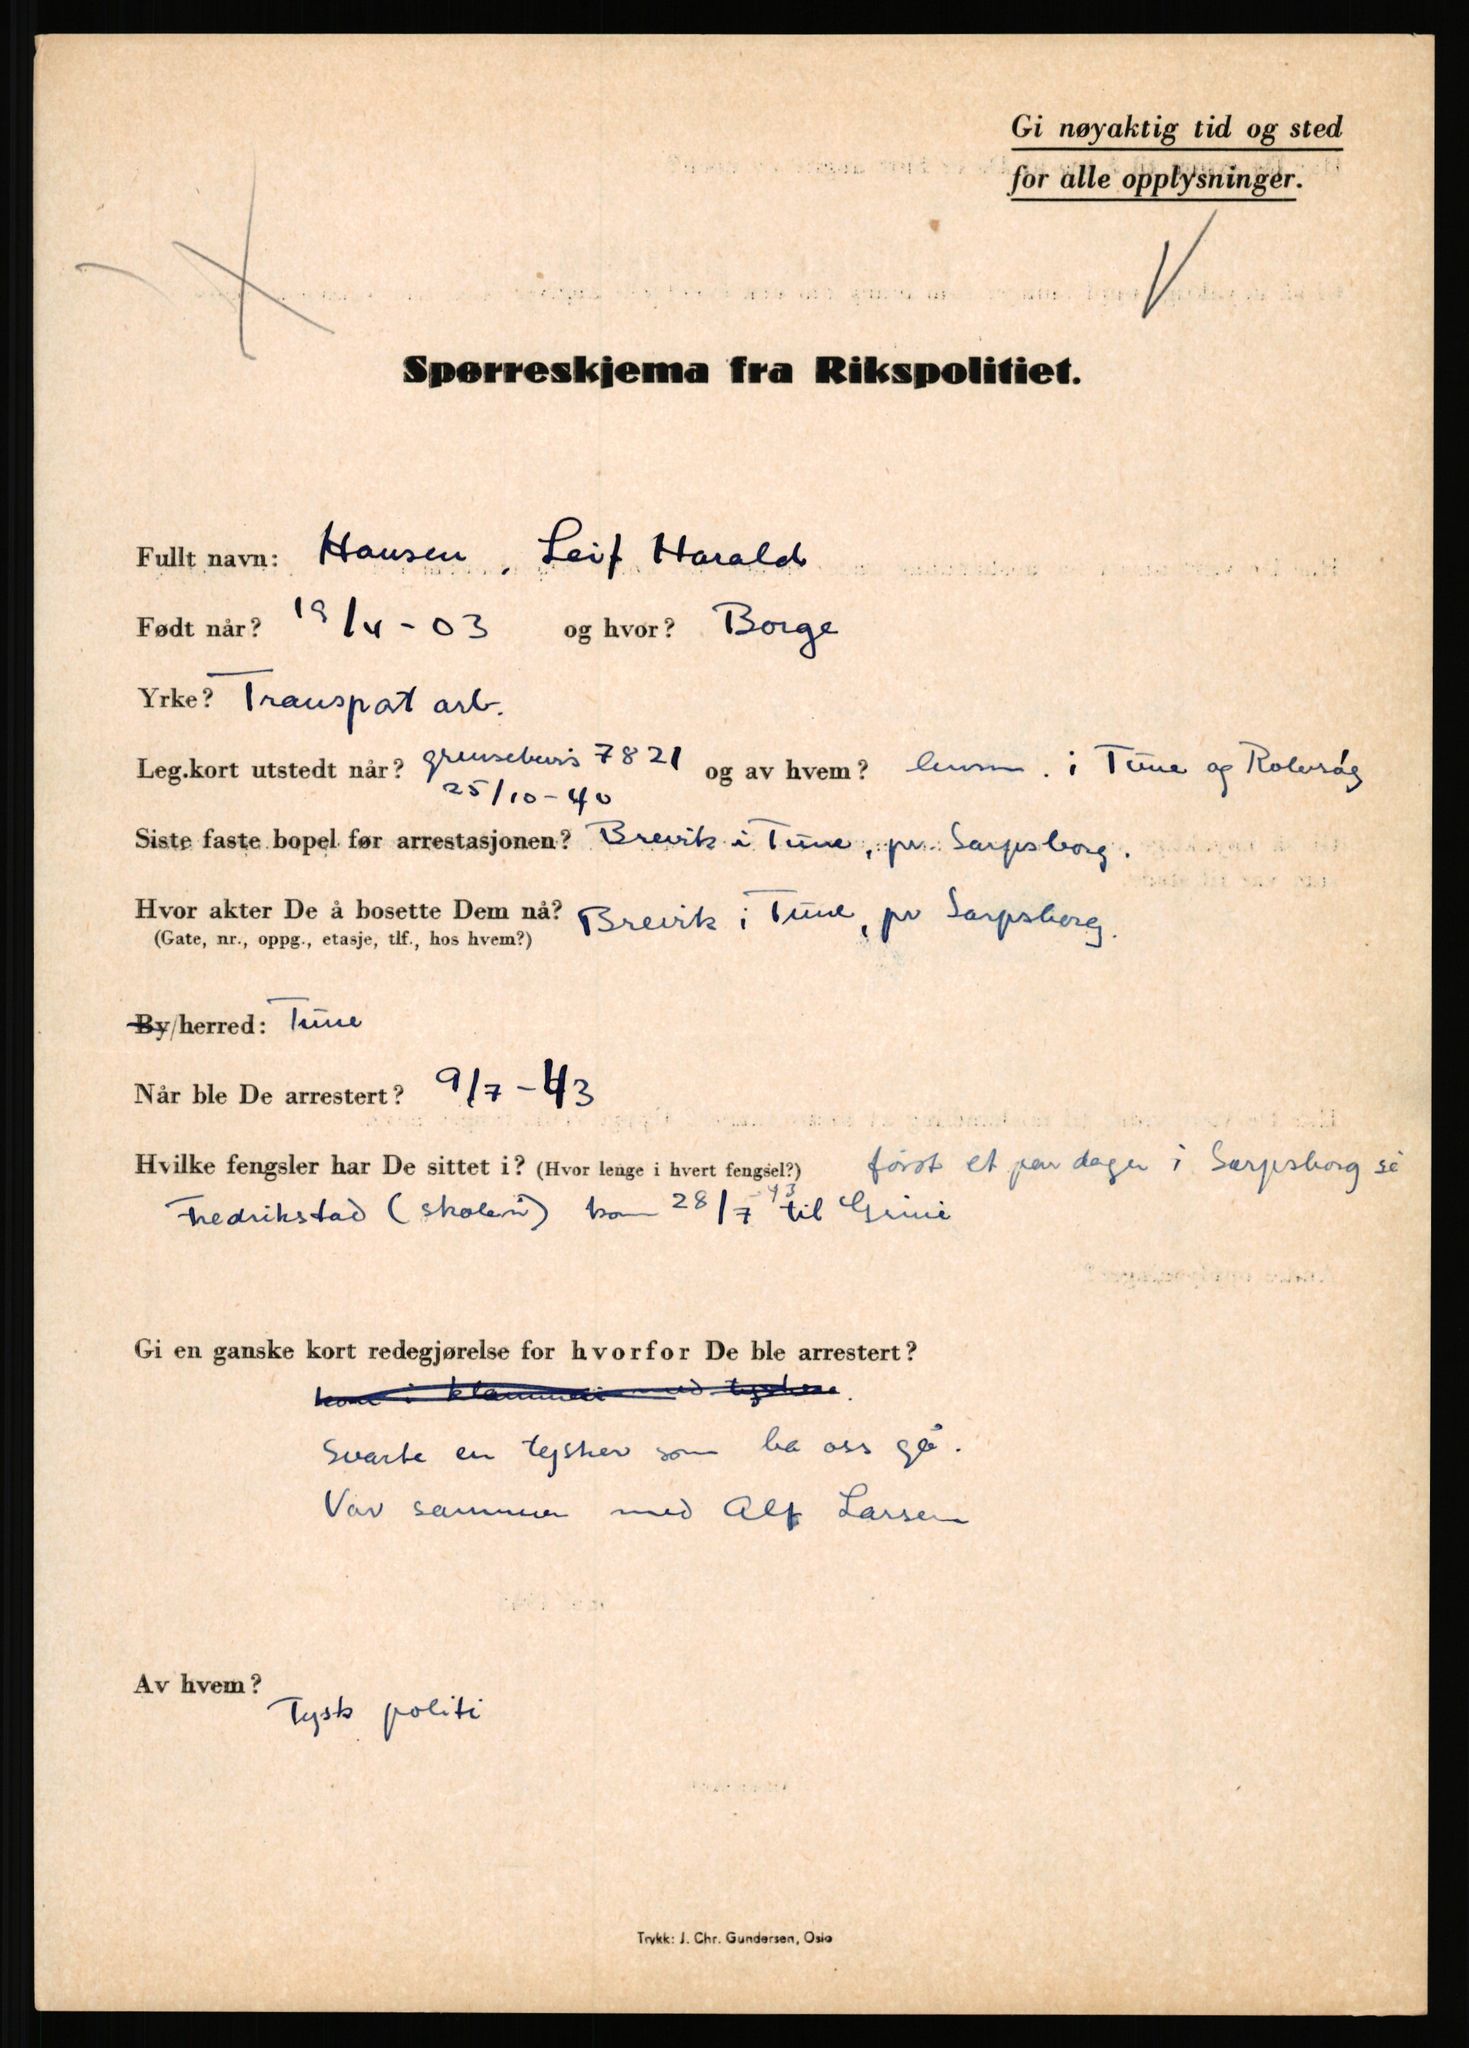 Gi nøyaktig tid og sted
for alle opplysninger.
Spørreskjema fra Rikspolitiet.
Fullt navn: Hansen, Leif Harald
Født når? 19/4-03 og hvor? Borge
Yrke? Transport arb.
Leg.kort utstedt når? grensebevis 7821 og av hvem? lensm. i Tune og Rolvsøy
25/10-40
Siste faste bopel før arrestasjonen? Brevik i Tune, pr. Sarpsborg.
Hvor akter De å bosette Dem nå? Brevik i Tune, pr Sarpsborg.
(Gate, nr., oppg., etasje, tlf., hos hvem?)
By/herred: Tune
Når ble De arrestert? 9/7-43
Hvilke fengsler har De sittet i? (Hvor lenge i hvert fengsel?) først et par dager i Sarpsborg så
Fredrikstad (skolen) kom 28/7-43 til Grini
Gi en ganske kort redegjørelse for hvorfor De ble arrestert?
kom i klammeri med tyskere.
Svarte en tysker som ba oss gå.
Var sammen med Alf Larsen
Av hvem?
Tysk politi
Trykk: J. Chr. Gundersen, Oslo